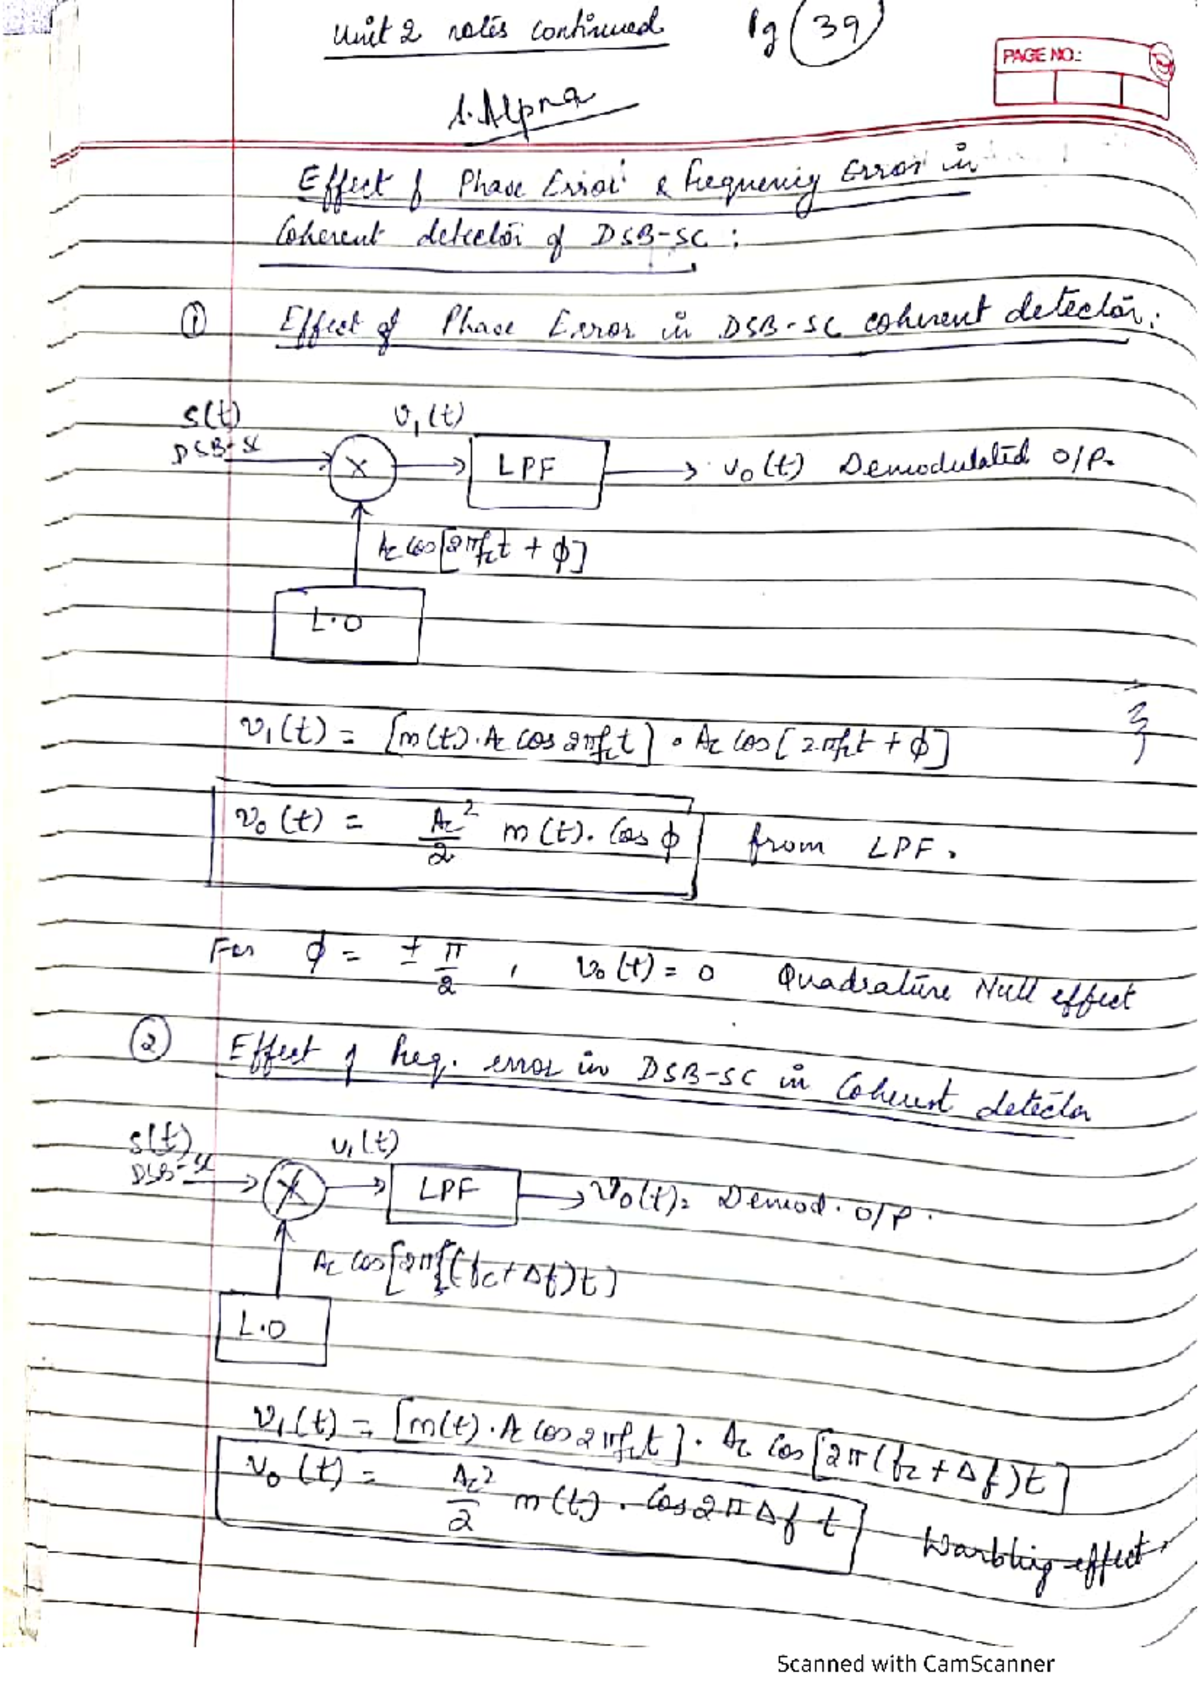 Unit 2 notes continued Pg 39
PAGE NO.:
Effect of Phase Error & frequency Error in
Coherent detector of DSB-SC :
① Effect of Phase Error in DSB-SC coherent detector :
S(t) v₁(t)
DSB-SC X LPF v₀(t) Demodulated O/P.
Ac cos[2πfct + φ]
L.O
v₁(t) = [m(t).Ac cos 2πfct] . Ac cos[2πfct + φ]
v₀(t) = Ac²/2 m(t). Cos φ from LPF.
For φ = ± π/2 , v₀(t) = 0 Quadrature Null effect
② Effect of freq. error in DSB-SC in Coherent detector
S(t) v₁(t)
DSB-SC X LPF v₀(t) = Demod. O/P.
Ac cos[2π(fc+Δf)t]
L.O
v₁(t) = [m(t).Ac cos 2πfct] . Ac cos[2π(fc+Δf)t]
v₀(t) = Ac²/2 m(t) . Cos 2πΔf t Warbling effect.
Scanned with CamScanner